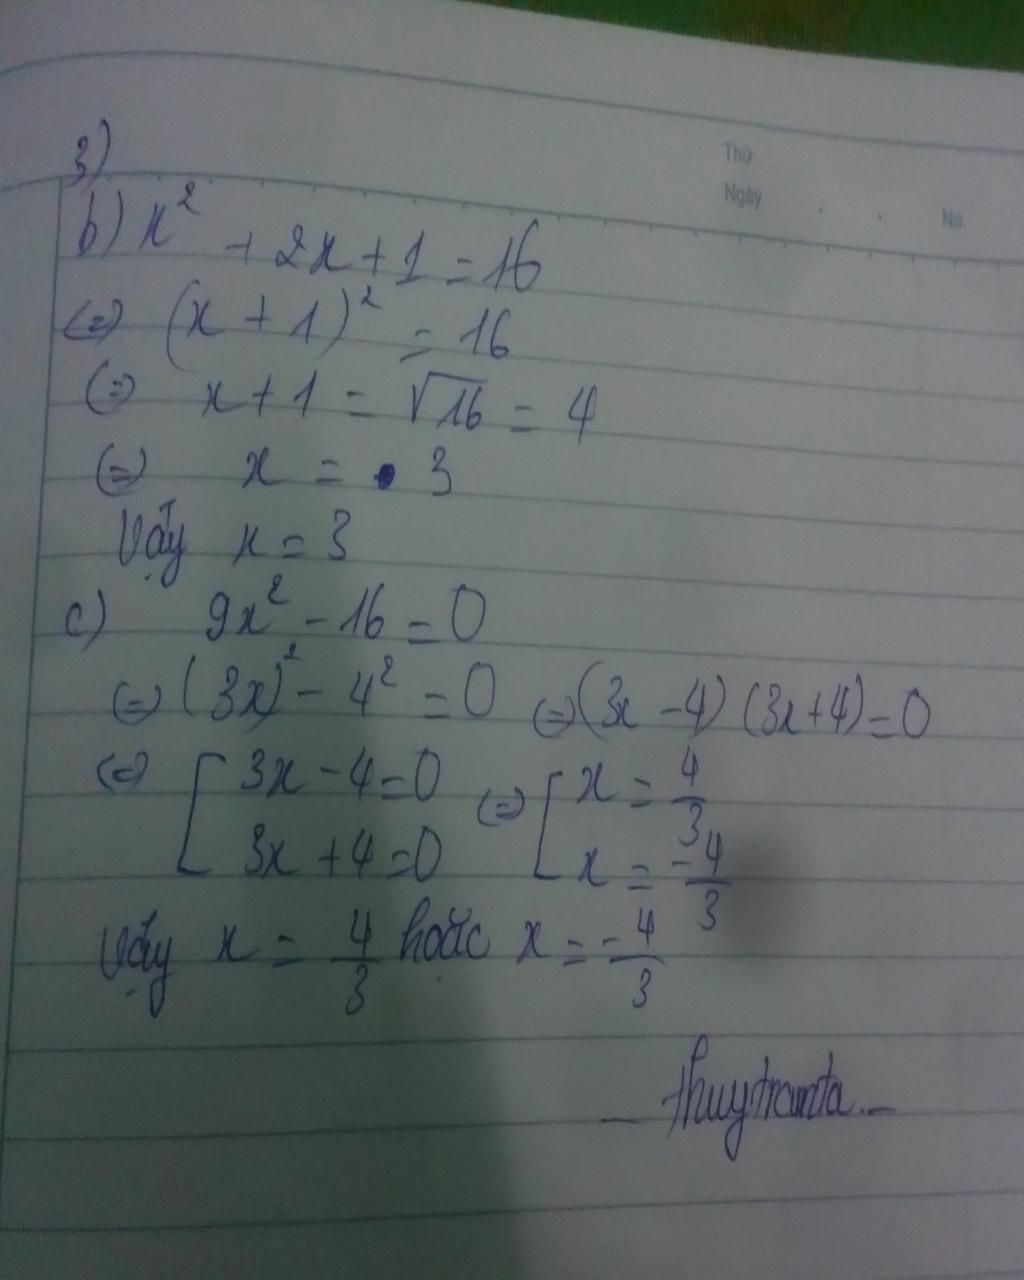 Thứ
Ngày
No
3)
b) x² + 2x + 1 = 16
(=) (x + 1)² = 16
(=) x + 1 = √16 = 4
(=) x = 3
Vậy x = 3
c) 9x² - 16 = 0
(=) (3x)² - 4² = 0 (=) (3x - 4) (3x + 4) = 0
(=) [ 3x - 4 = 0 (=) [ x = 4/3
3x + 4 = 0 x = -4/3
Vậy x = 4/3 hoặc x = -4/3
- thuytramta -